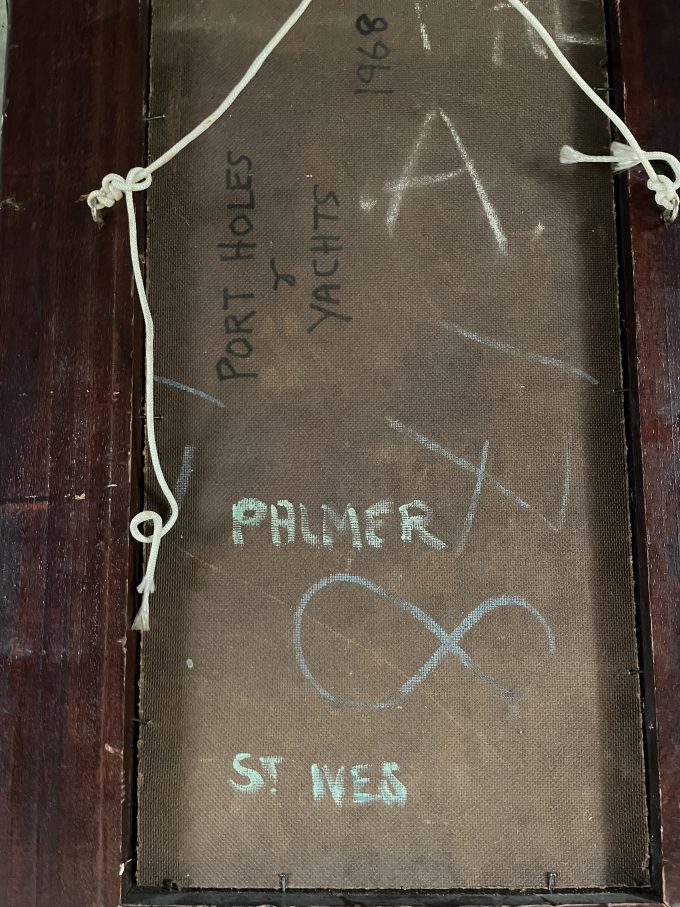 1968
PORT HOLES
&
YACHTS
.A.
PALMER
8
ST IVES